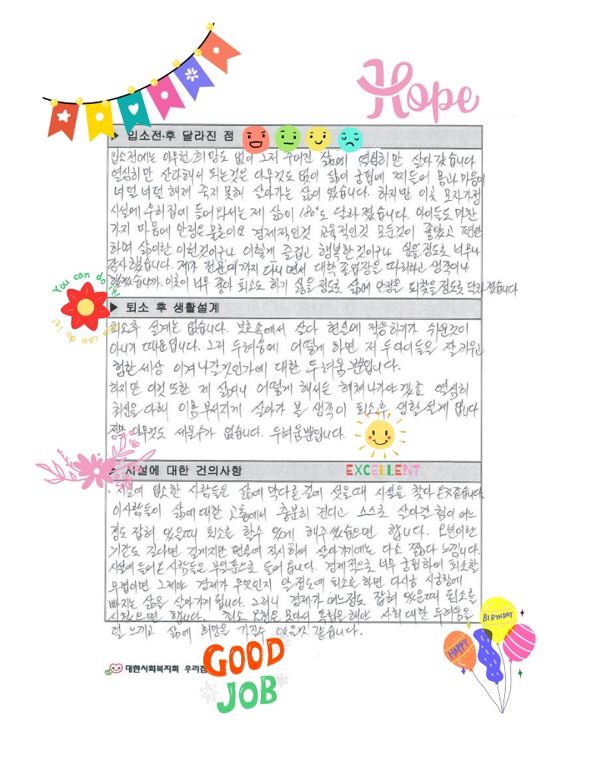 Hope
▶ 입소전·후 달라진 점
입소전에는 아무런 희망도 없이 그저 주어진 삶에 열심히만 살아갔습니다
열심히만 산다해서 되는것은 아무것도 없이 삶이 궁핍에 찌들어 몸과 마음이
너덜 너덜 해져 죽지 못해 살아가는 삶이 였습니다. 하지만 이곳 모자가정
시설에 우리집에 들어와서는 제 삶이 180°도 달라졌습니다. 아이들도 마찬
가지 마음에 안정은 물론이요 경제적인것 교육적인것 모든것이 좋았고 편안
하여 삶이란 이런것이구나 이렇게 즐겁고 행복한것이구나 싶을정도로 너무나
감사했습니다. 제가 전문대까지 다시면서 대학 졸업장을 따리라곤 생각이나
했겠습니까. 이곳이 너무 좋아 퇴소도 하기 싫을정도로 삶에 안정을 되찾을정도로 달라졌습니다
You can do it!
You can do it!
▶ 퇴소 후 생활설계
퇴소후 설계는 없습니다. 보호속에서 살다 현실에 적응하기가 쉬운것이
아니기 때문입니다. 그저 두려움에 어떻게 하면 저 두아이들을 잘 키우고
험한세상 이겨나갈것인가에 대한 두려움뿐입니다.
하지만 이것 또한 제 삶이니 어떻게 해서든 헤쳐나가야겠죠 열심히
최선을 다해 이름 부서지게 살아가 볼 생각이 퇴소후 생활 설계 입니다
정말 아무것도 세울수가 없습니다. 두려움뿐입니다.
▶ 시설에 대한 건의사항
EXCELLENT
· 시설에 입소한 사람들은 삶에 막다른 길에 섯을때 시설을 찾아 온것같습니다.
이사람들이 삶에 대한 고통에서 충분히 견디고 스스로 살아갈 힘이 어느
정도 잡혀 있을때 퇴소를 할수 있게 해주셨으면 합니다. 오년이란
기간도 길다면 길게지만 현실에 직시하여 살아가기에는 다소 짧다 느낍니다.
시설에 들어온 사람들은 무일푼으로 들어 옵니다. 경제적으로 너무 궁핍하여 퇴소할
무렵이면 그제야 경제가 무엇인지 알 정도에 퇴소를 하면 다시금 시궁창에
빠지는 삶을 살아가게 됩니다. 그러니 경제가 어느정도 잡혀 있을때 퇴소를
시켰으면 합니다.
덜 느끼고 삶에 희망을 가질수 있을것 같습니다.
대한사회복지회 우리집
GOOD
JOB
HAPPY
BIRTHDAY